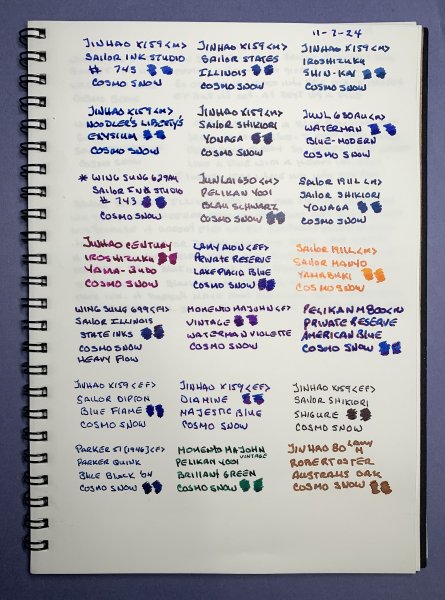 11-7-24
JINHAO X159 <M>
SAILOR INK STUDIO
# 743
COSMO SNOW
JINHAO X159 <M>
SAILOR STATES
ILLINOIS
COSMO SNOW
JINHAO X159 <M>
IROSHIZUKU
SHIN-KAI
COSMO SNOW
JINHAO X159 <M>
NOODLER'S LIBERTY'S
ELYSIUM
COSMO SNOW
JINHAO X159 <M>
SAILOR SHIKIORI
YONAGA
COSMO SNOW
630
WATERMAN
BLUE-MODERN
COSMO SNOW
* WING SUNG 629
SAILOR INK STUDIO
# 743
COSMO SNOW
JUNLAI 630 <M>
PELIKAN 4001
BLAU SCHWARZ
COSMO SNOW
SAILOR 1911L <M>
SAILOR SHIKIORI
YONAGA
COSMO SNOW
JINHAO CENTURY
IROSHIZUKU
YAMA-BUDO
COSMO SNOW
LAMY AION <EF>
PRIVATE RESERVE
LAKE PLACID BLUE
COSMO SNOW
SAILOR 1911L <M>
SAILOR MANYO
YAMABUKI
COSMO SNOW
WING SUNG 699 <F>
SAILOR ILLINOIS
STATE INKS
COSMO SNOW
HEAVY FLOW
MOMENTO MAJOHN <F>
VINTAGE
WATERMAN VIOLETTE
COSMO SNOW
PELIKAN M800
PRIVATE RESERVE
AMERICAN BLUE
COSMO SNOW
JINHAO X159 <EF>
SAILOR DIPTON
BLUE FLAME
COSMO SNOW
JINHAO X159 <EF>
DIAMINE
MAJESTIC BLUE
COSMO SNOW
JINHAO X159 <EF>
SAILOR SHIKIORI
SHIGURE
COSMO SNOW
PARKER 51 [1946] <F>
PARKER QUINK
BLUE BLACK
COSMO SNOW
MOMENTO MAJOHN
VINTAGE
PELIKAN 4001
BRILLIANT GREEN
COSMO SNOW
JINHAO 80 LAMY
M
ROBERT OSTER
AUSTRALIS OAK
COSMO SNOW